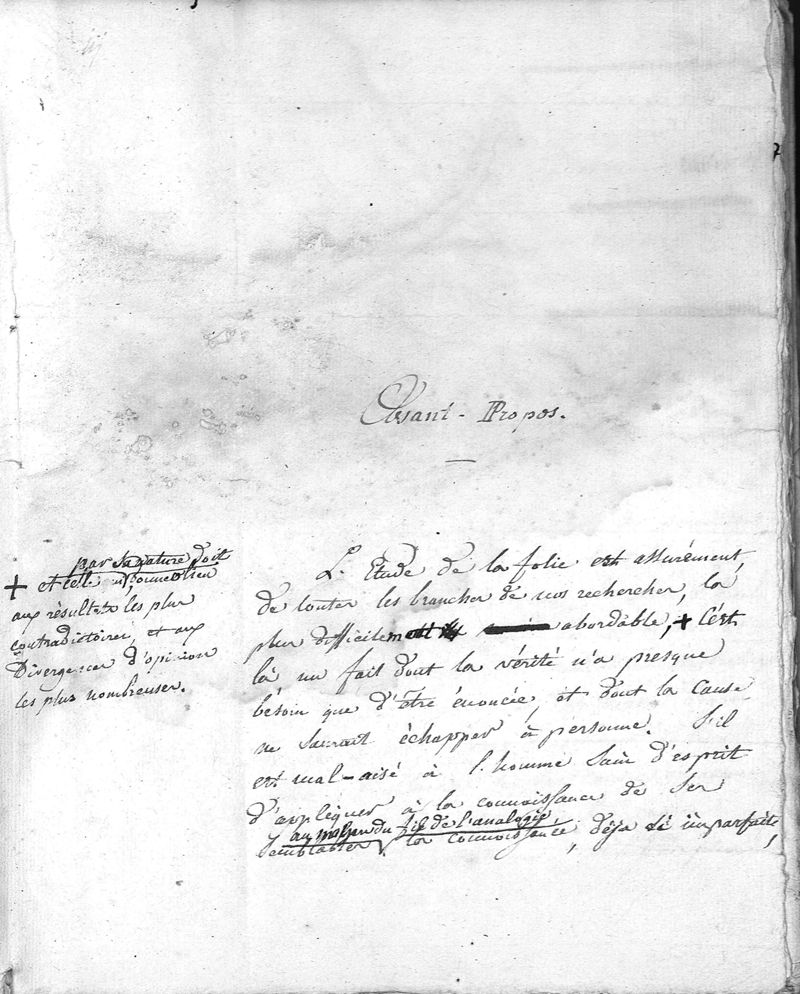 7
Avant-Propos.
L'Etude de la folie est assurément,
de toutes les branches de nos recherches, la
plus difficilement abordable, + C'est
là un fait dont la vérité n'a presque
bésoin que d'être énoncée, et dont la cause
ne saurait échapper à personne. S'il
est mal-aisé à l'homme sain d'esprit
d'appliquer à la connoissance de ses
au moyen du fil de l'analogie
semblables la connoissance, déja si imparfaite,
par sa nature doit
+ et celle donner lieu
aux résultats les plus
contradictoires, et aux
Divergences d'opinion
les plus nombreuses.